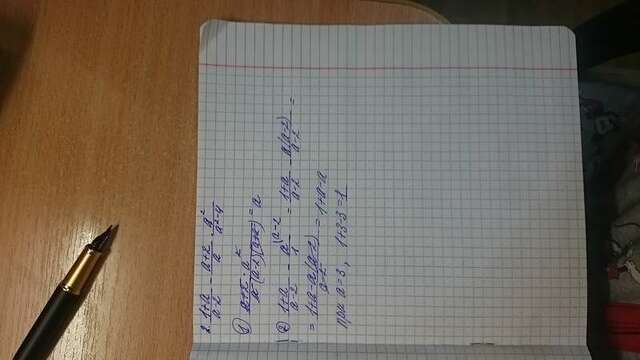 2. \frac{1+a}{a-2} - \frac{a+2}{a} \cdot \frac{a^2}{a^2-4}
① \frac{a+2 \cdot a^2}{a(a-2)(a+2)} = a
② \frac{1+a}{a-2} - \frac{a}{1}^{\backslash a-2} = \frac{1+a}{a-2} - \frac{a(a-2)}{a-2} =
= \frac{1+a-a(a-2)}{a-2} = 1+a-a
при a=3, 1+3-3=1